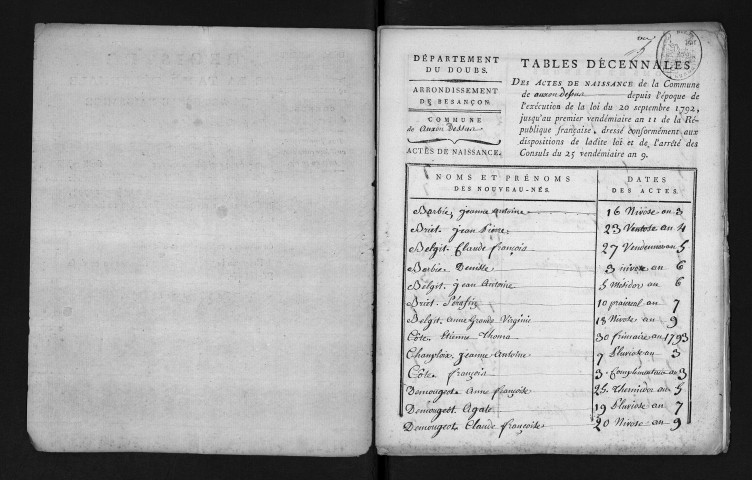 DÉPARTEMENT
DU DOUBS.
ARRONDISSEMENT
DE BESANÇON.
COMMUNE
de auxon Dessus
ACTES DE NAISSANCE.
TABLES DÉCENNALES
DES ACTES DE NAISSANCE de la Commune
de auxon dessus depuis l'époque de
l'exécution de la loi du 20 septembre 1792,
jusqu'au premier vendémiaire an 11 de la Ré-
publique française, dressé conformément aux
dispositions de ladite loi et de l'arrêté des
Consuls du 25 vendémiaire an 9.
NOMS ET PRÉNOMS
DES NOUVEAU-NÉS.
DATES
DES ACTES.
Barbie, jeanne antoine 16 Nivose an 3
Briet. jean Pierre 23 Ventose an 4
Belgit. Claude françois 27 Vendemiaire an 5
Barbie Denille 3 nivose an 6
Belgit. jean Antoine 5 Mesidor an 6
Briet. Serafin 10 prairial an 7
Belgit. anne Virginie 18 Nivose an 9
Côte. Etienne Thoma 30 frimaire an 1793
Champloix jeanne Antoine 7 Pluviose an 3
Côte. françois 3e Complementaire an 3
Demougeot anne françoise 25 Thermidor an 5
Demougeot. Agate 19 Pluviose an 7
Demougeot Claude françoise 20 Nivose an 9